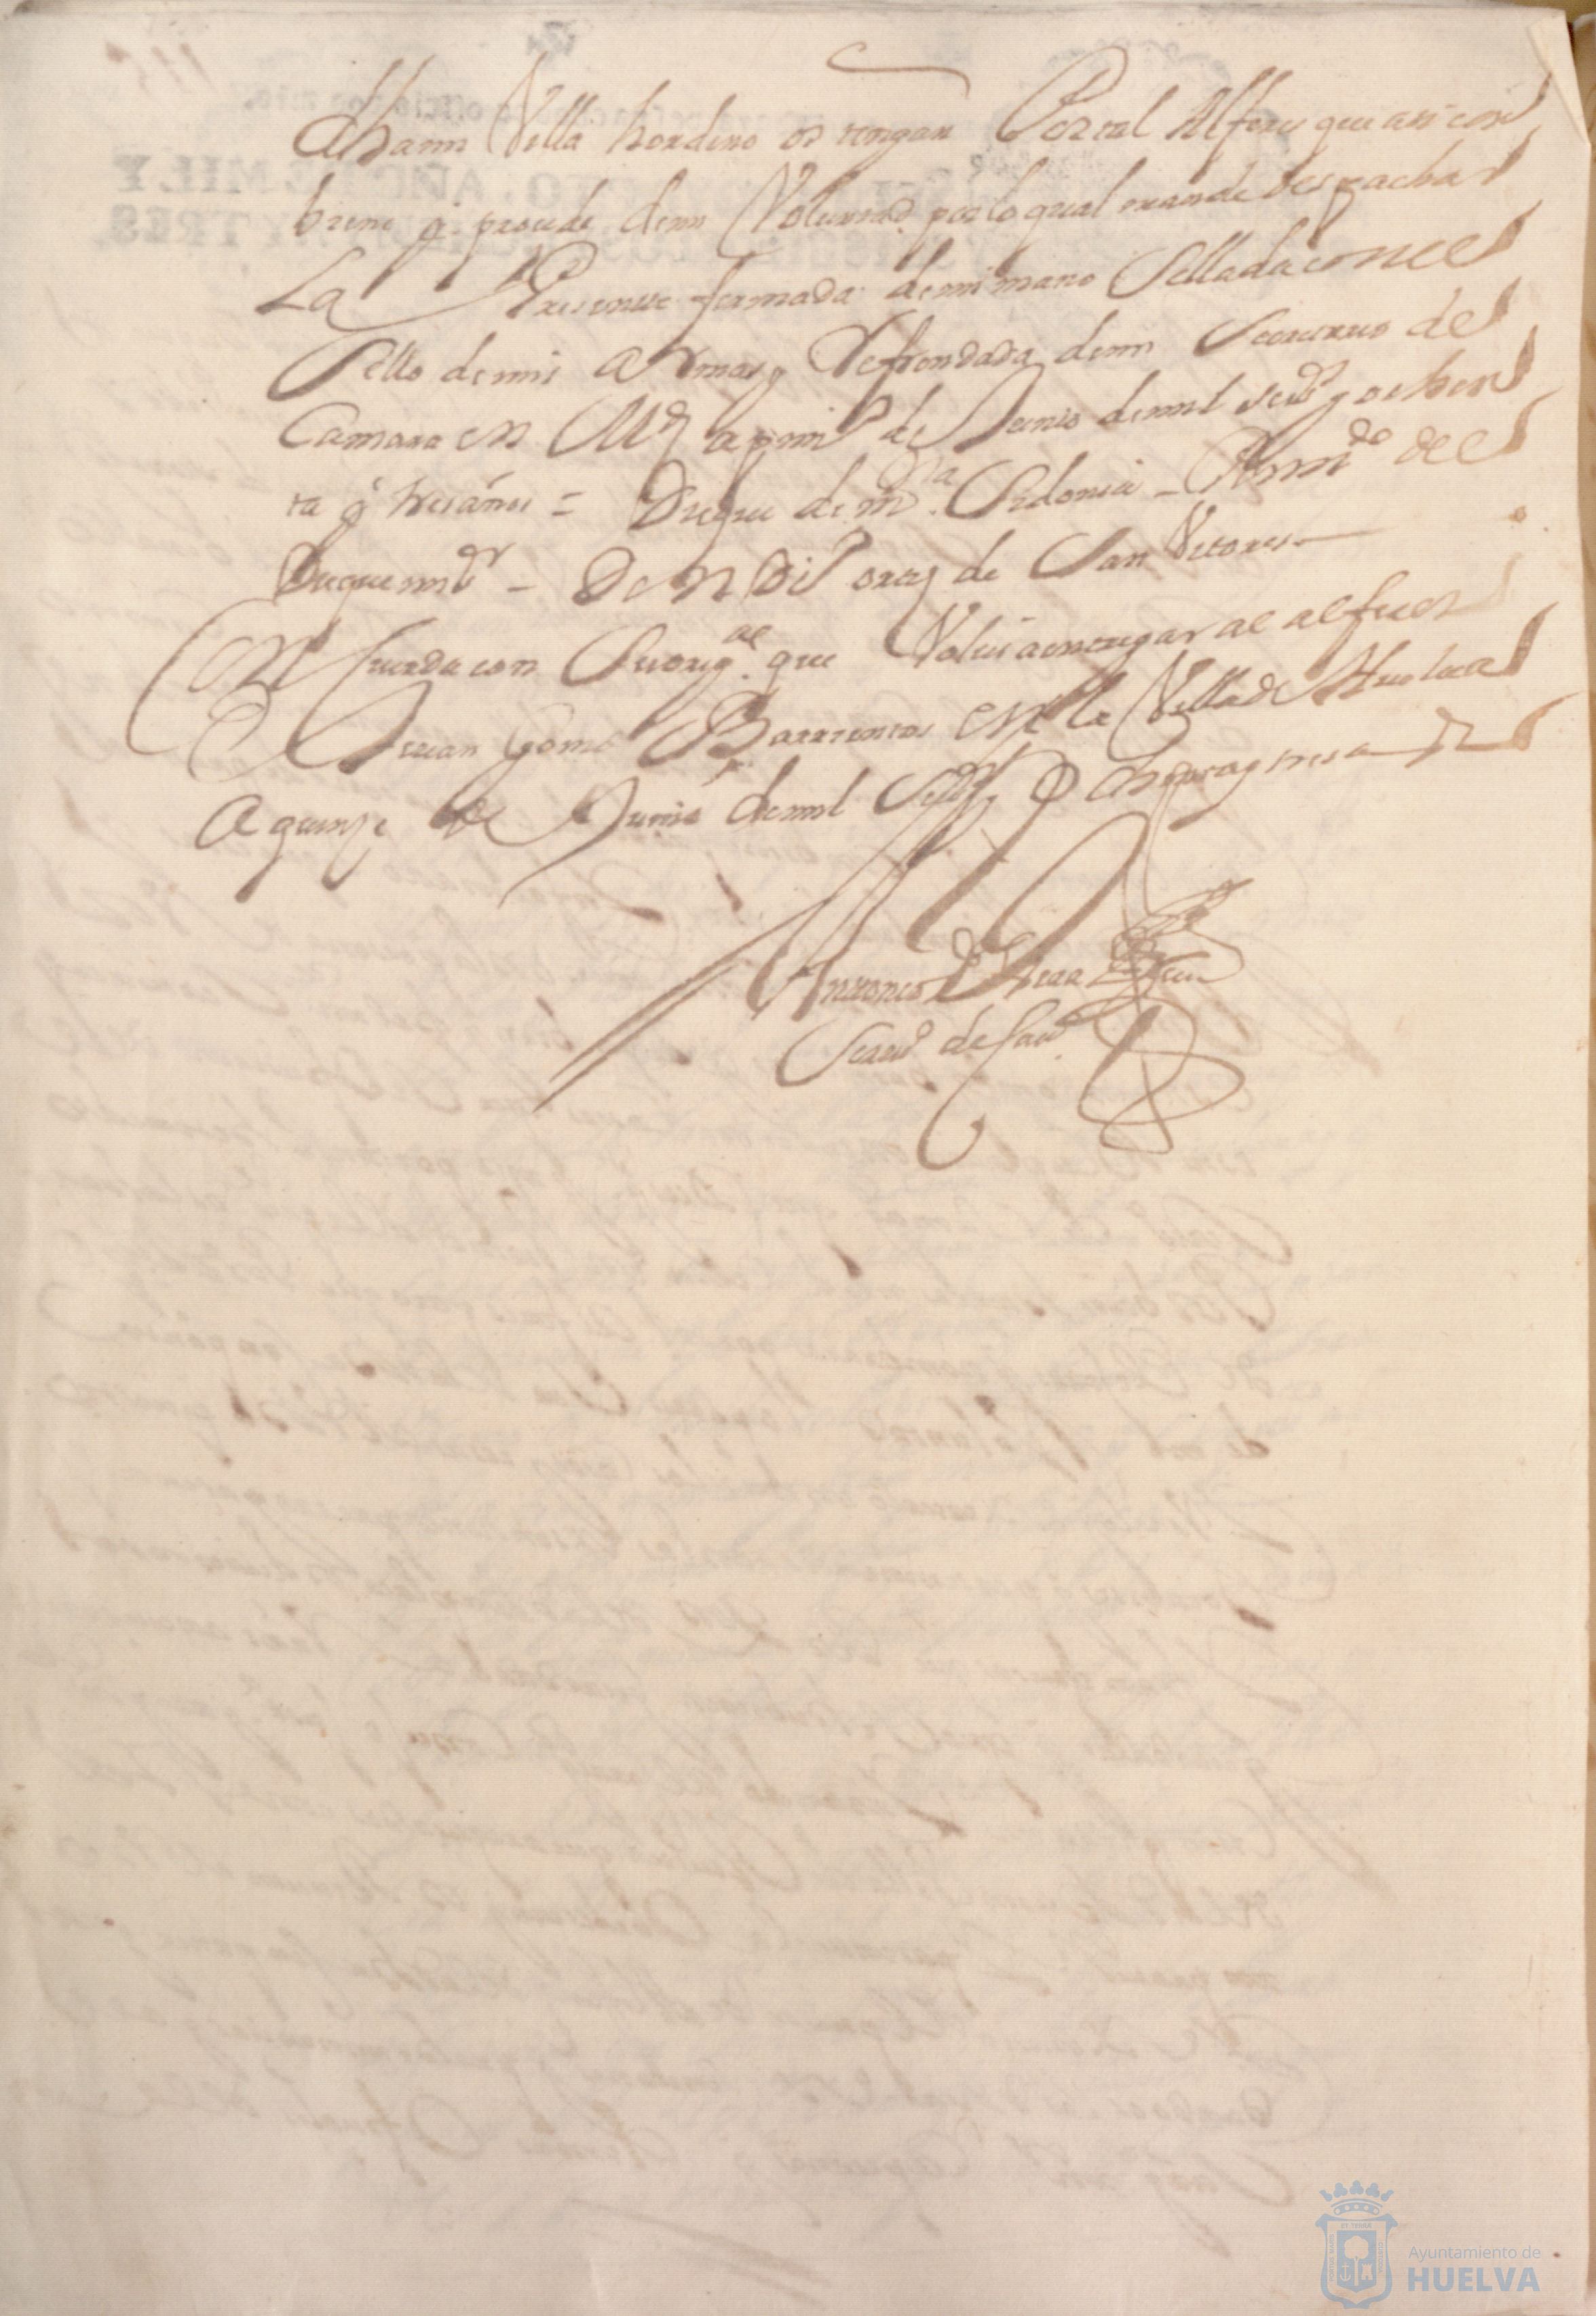 dha mi Villa hordeno os tengan Por tal Alferez que asi con
biene y prosede de mi Voluntad por lo qual mande despachar
La Presente firmada de mi mano Sellada con el
Sello de mis Armas y Refrendada de mi Secretario de
Camara en Md a primo de Junio de mil seisº y ochen
ta y tres años = Duque de Mª Sidonia – Por mdº del
Duque mi sr – Don Diº ortiz de San Vitores –
Concuerda con Su origal que Volvi a entregar al alferez
Juan Gomez Barrientos en la Villa de Huelva
A quinze de Junio de mil Seisº y Ochenta y tres aº
Antonio de
Scrivº de Cavº
Ayuntamiento de
HUELVA